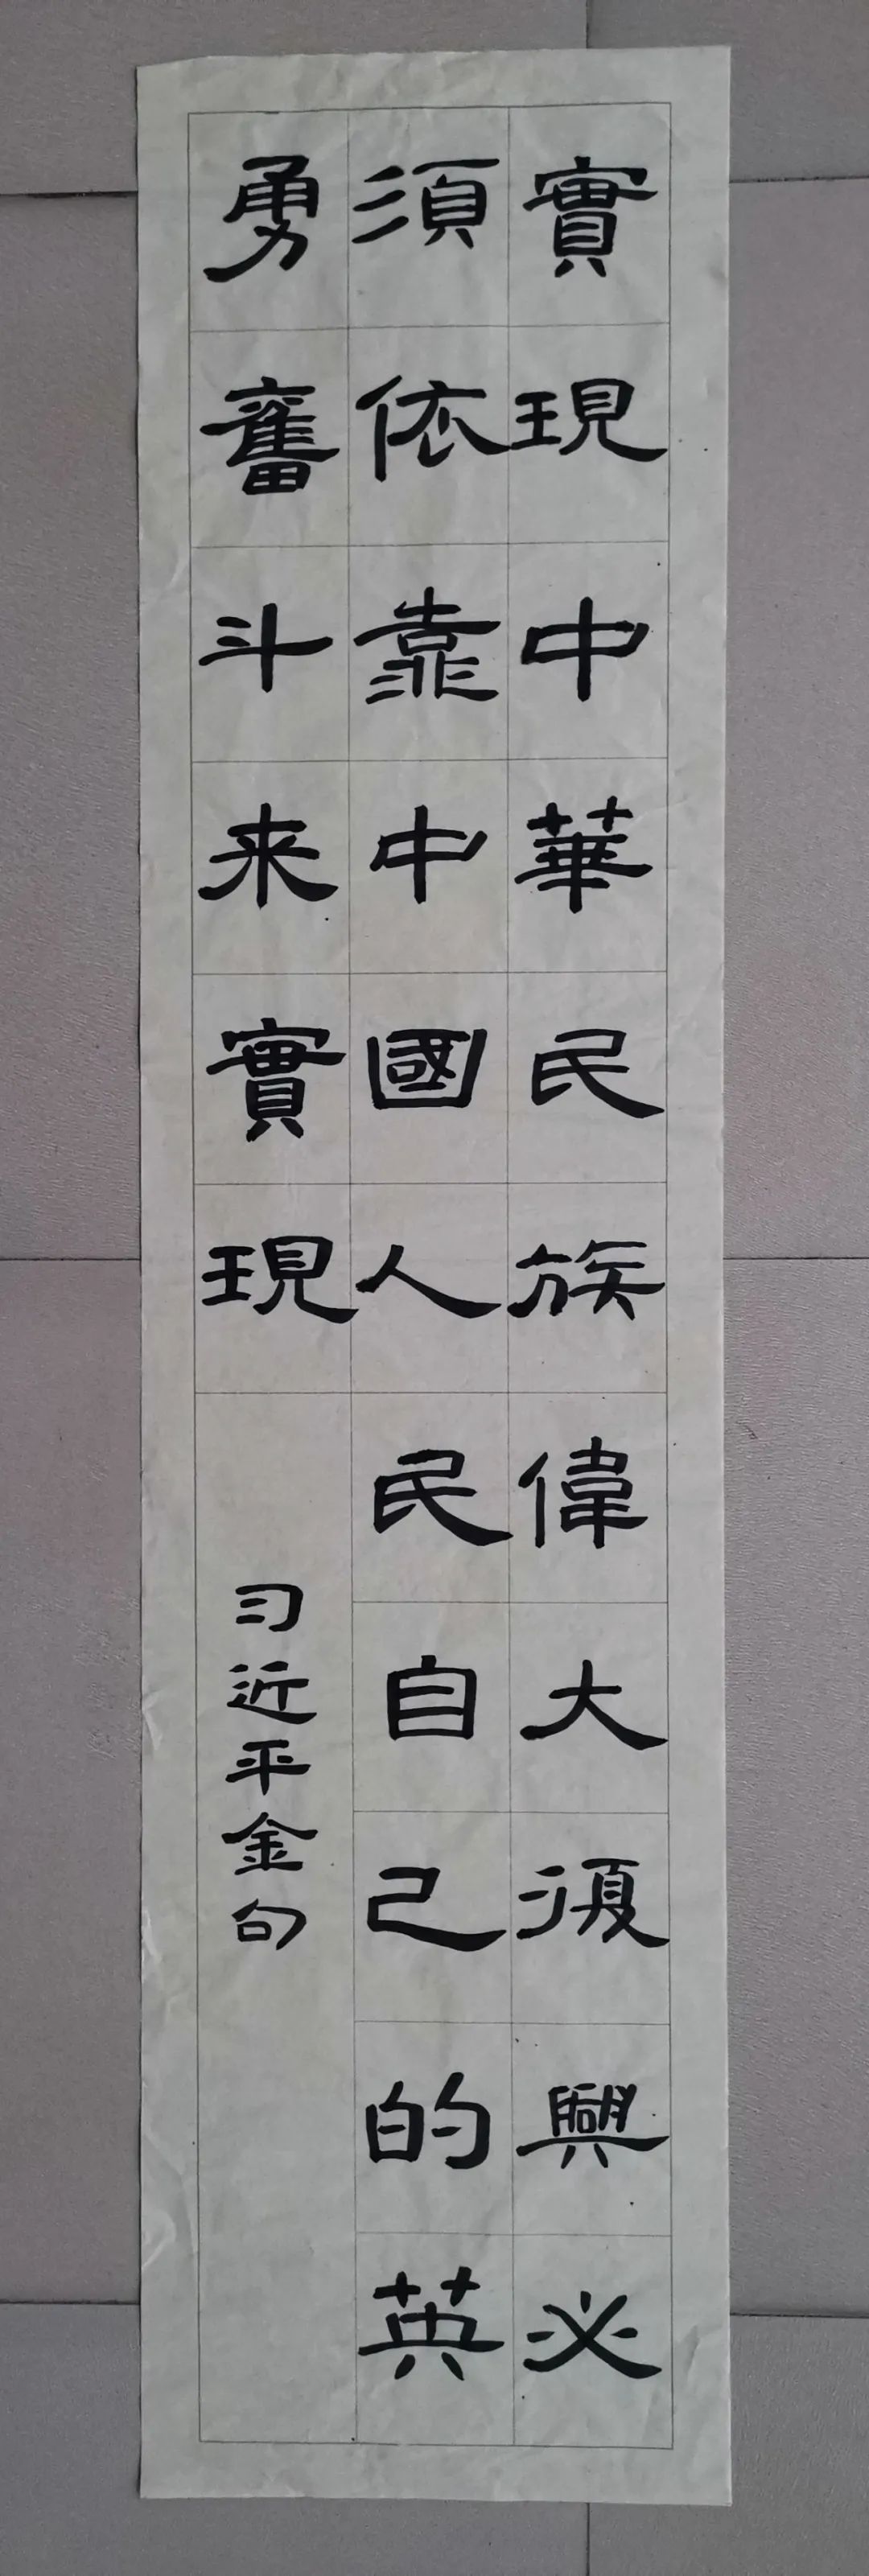 實現中華民族偉大復興必
須依靠中國人民自己的英
勇奮斗来實現
习近平金句